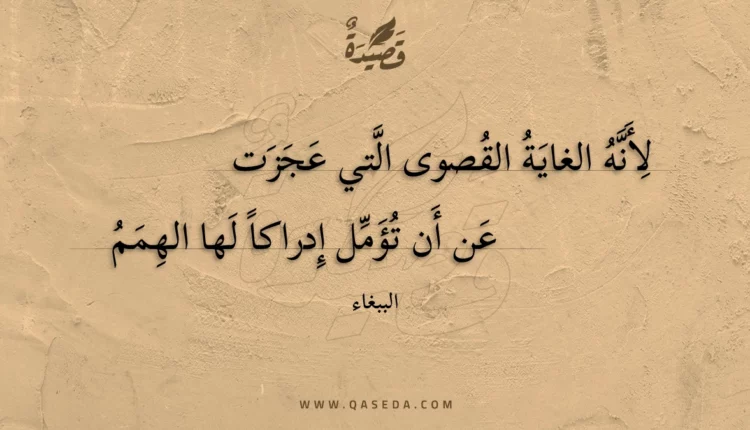 قَصِيدَةٌ
لِأَنَّهُ الغايَةُ القُصوى الَّتي عَجَزَت
عَن أَن تُؤَمِّل إِدراكاً لَها الهِمَمُ
الببغاء
WWW.QASEDA.COM